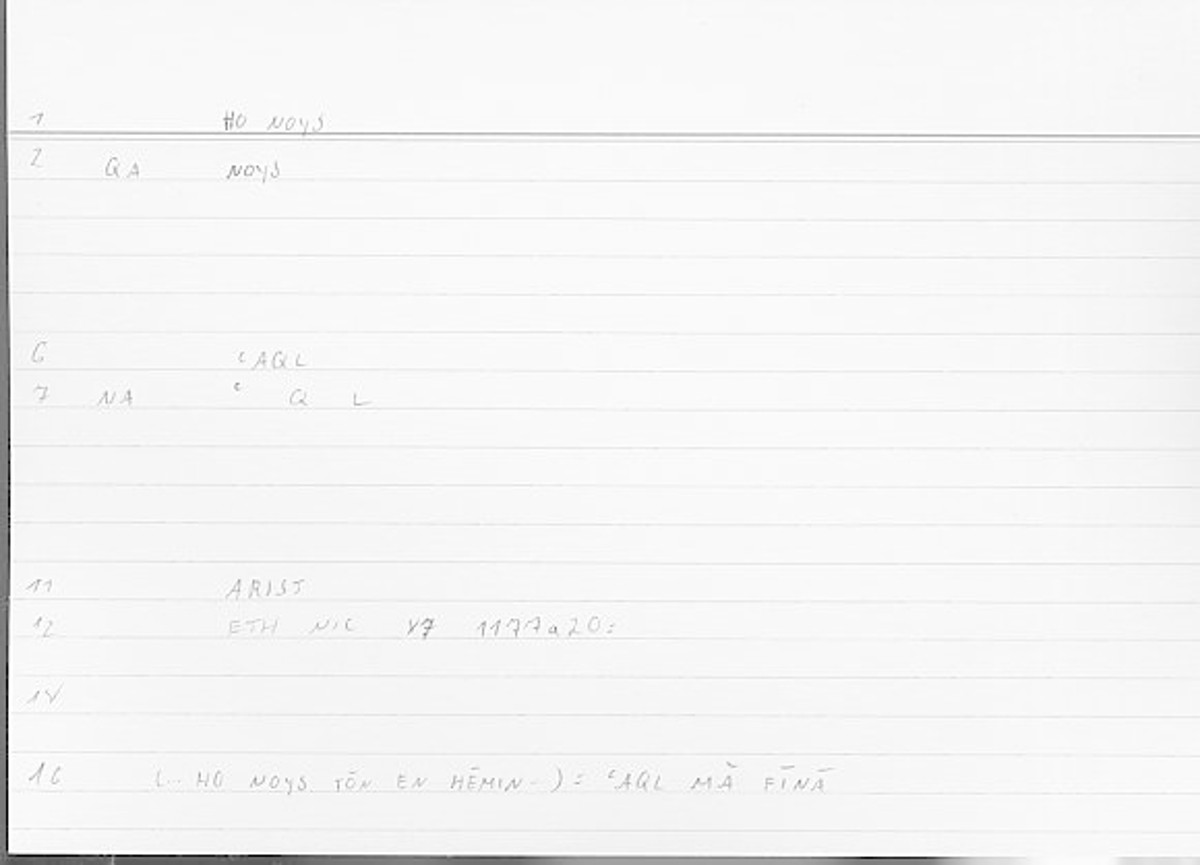 1 HO NOYS
2 QA NOYS
6 ʿAQL
7 NA ʿ Q L
11 ARIST
12 ETH NIC 1177a20:
14
16 (.. HO NOYS TŌN EN HĒMIN..) = ʿAQL MĀ FĪNĀ